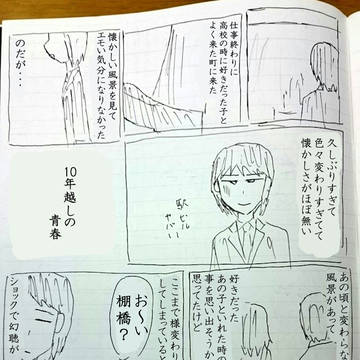 仕事終わりに
高校の時に好きだった子と
よく来た町に来た
懐かしい風景を見て
エモい気分になりなかった
のだが・・・
久しぶりすぎて
色々変わりすぎてて
懐かしさがほぼ無い
駅ビル
ヤバい
10年越しの
青春
あの頃と変わらな
風景があって
好きだった
あの子といれた時の
事を思い出そうか
思ってたけど
ここまで様変わり
してしまっていると
お〜い
棚橋？
ショックで幻聴が